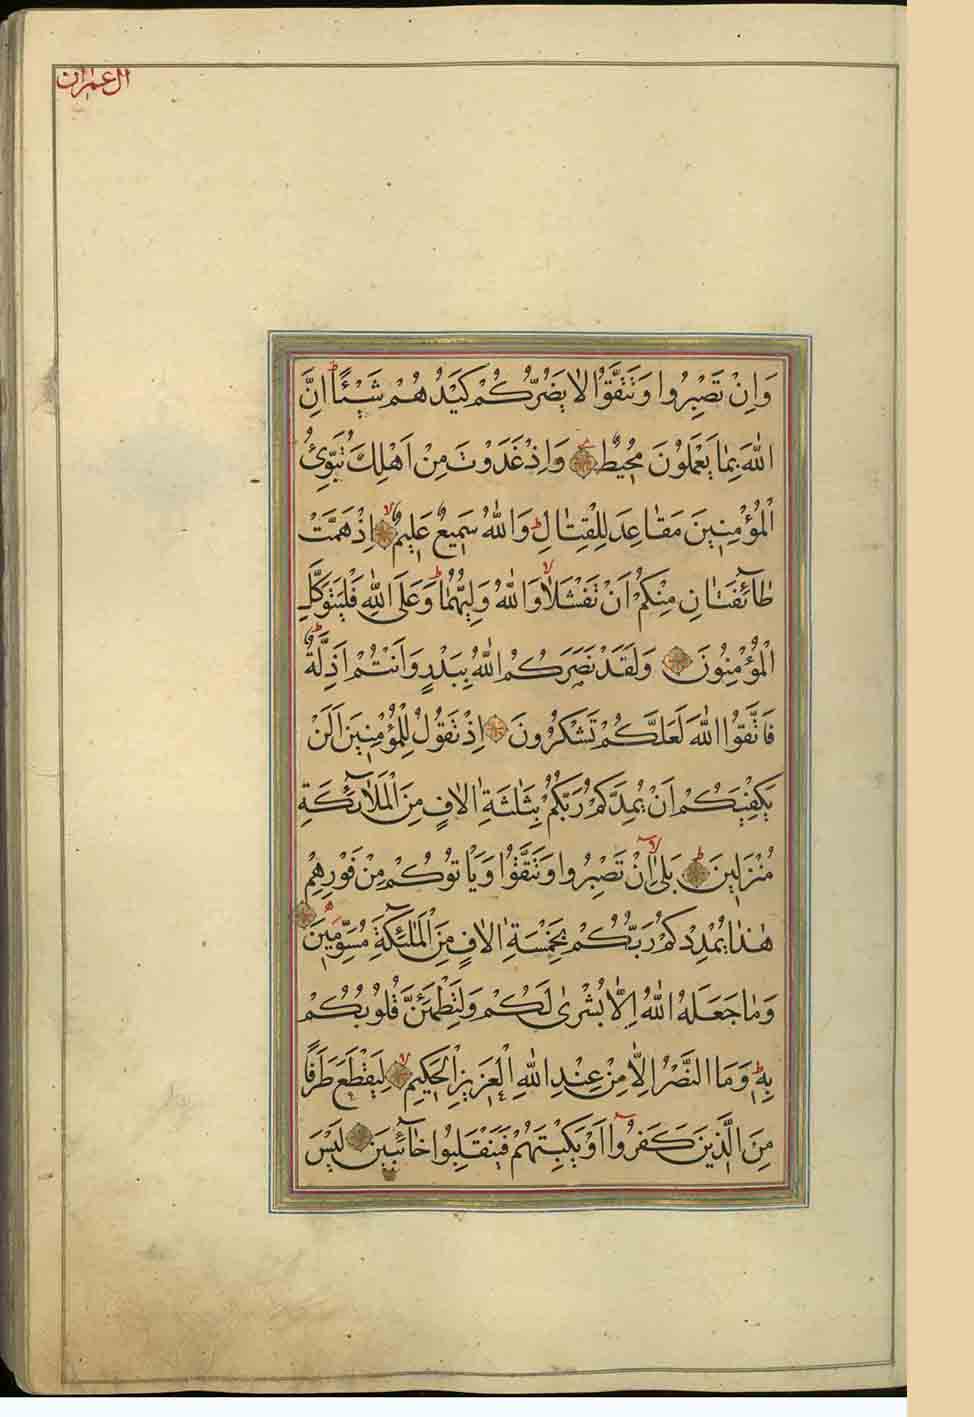 ال عمران
وَاِنْ تَصْبِرُوا وَتَتَّقُوا لَا يَضُرُّكُمْ كَيْدُهُمْ شَيْـًٔا اِنَّ
اللّٰهَ بِمَا يَعْمَلُونَ مُحِيطٌ وَاِذْ غَدَوْتَ مِنْ اَهْلِكَ تُبَوِّئُ
الْمُؤْمِنِينَ مَقَاعِدَ لِلْقِتَالِ وَاللّٰهُ سَمِيعٌ عَلِيمٌ اِذْ هَمَّتْ
طَآئِفَتَانِ مِنْكُمْ اَنْ تَفْشَلَا وَاللّٰهُ وَلِيُّهُمَا وَعَلَى اللّٰهِ فَلْيَتَوَكَّلِ
الْمُؤْمِنُونَ وَلَقَدْ نَصَرَكُمُ اللّٰهُ بِبَدْرٍ وَاَنْتُمْ اَذِلَّةٌ
فَاتَّقُوا اللّٰهَ لَعَلَّكُمْ تَشْكُرُونَ اِذْ تَقُولُ لِلْمُؤْمِنِينَ اَلَنْ
يَكْفِيَكُمْ اَنْ يُمِدَّكُمْ رَبُّكُمْ بِثَلٰثَةِ اٰلَافٍ مِنَ الْمَلَآئِكَةِ
مُنْزَلِينَ بَلٰى اِنْ تَصْبِرُوا وَتَتَّقُوا وَيَأْتُوكُمْ مِنْ فَوْرِهِمْ
هٰذَا يُمْدِدْكُمْ رَبُّكُمْ بِخَمْسَةِ اٰلَافٍ مِنَ الْمَلٰٓئِكَةِ مُسَوِّمِينَ
وَمَا جَعَلَهُ اللّٰهُ اِلَّا بُشْرٰى لَكُمْ وَلِتَطْمَئِنَّ قُلُوبُكُمْ
بِهٖ وَمَا النَّصْرُ اِلَّا مِنْ عِنْدِ اللّٰهِ الْعَزِيزِ الْحَكِيمِ لِيَقْطَعَ طَرَفًا
مِنَ الَّذِينَ كَفَرُوا اَوْ يَكْبِتَهُمْ فَيَنْقَلِبُوا خَآئِبِينَ لَيْسَ